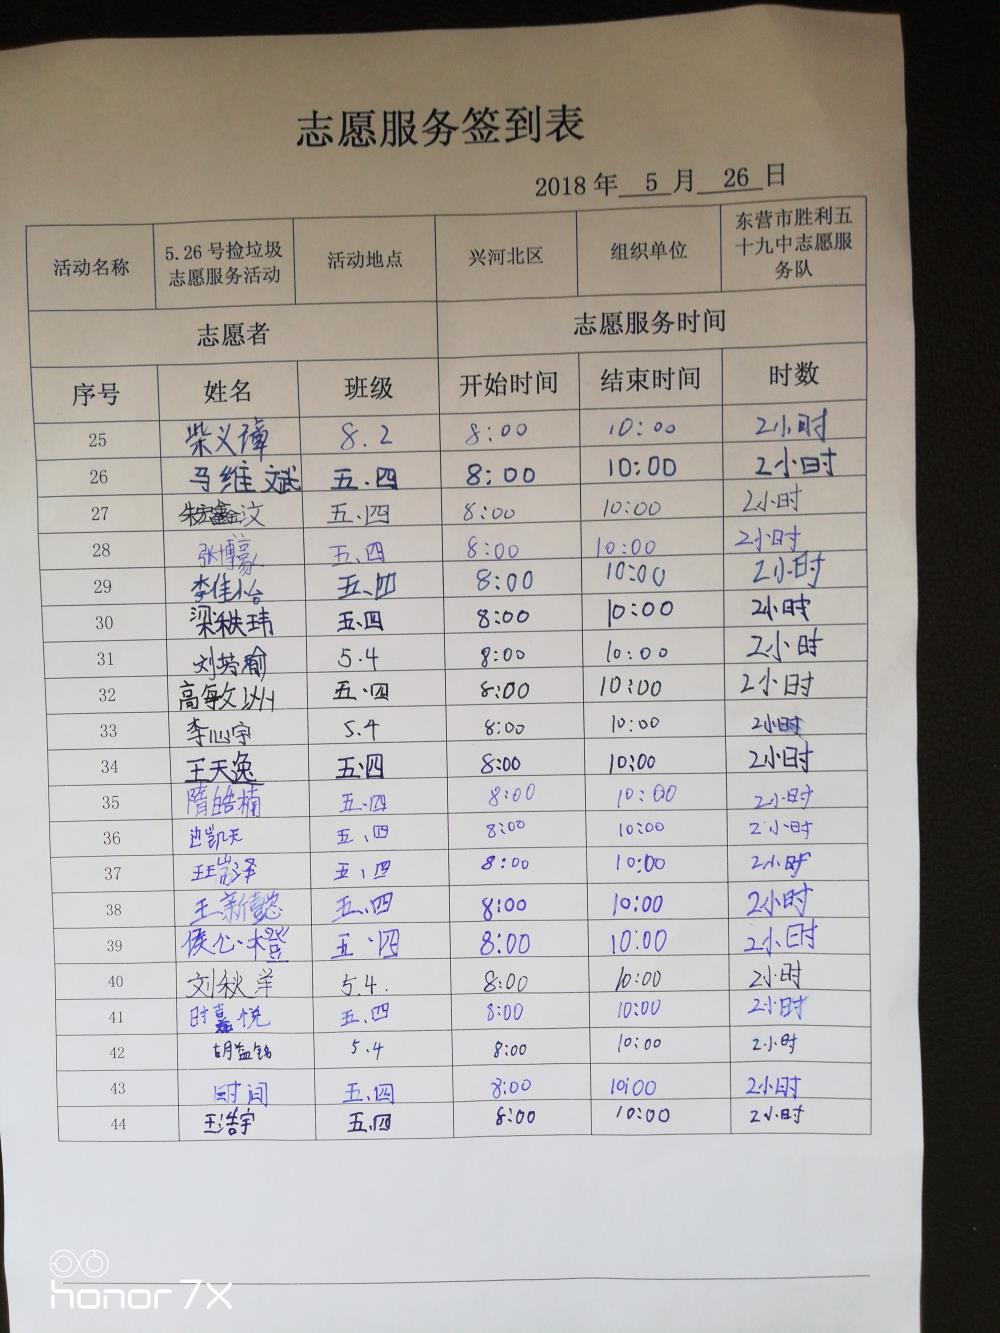 志愿服务签到表
2018 年 5 月 26 日
活动名称 5.26 号捡垃圾志愿服务活动 活动地点 兴河北区 组织单位 东营市胜利五十九中志愿服务队
志愿者 志愿服务时间
序号 姓名 班级 开始时间 结束时间 时数
25 柴义璋 8.2 8:00 10:00 2小时
26 马维斌 五.四 8:00 10:00 2小时
27 五.四 8:00 10:00 2小时
28 张博豪 五.四 8:00 10:00 2小时
29 李佳怡 五.四 8:00 10:00 2小时
30 梁秩玮 五.四 8:00 10:00 2小时
31 刘芳瑜 5.4 8:00 10:00 2小时
32 高敏洲 五.四 8:00 10:00 2小时
33 李心宇 5.4 8:00 10:00 2小时
34 王天逸 五.四 8:00 10:00 2小时
35 隋皓楠 五.四 8:00 10:00 2小时
36 五.四 8:00 10:00 2小时
37 五.四 8:00 10:00 2小时
38 王新懿 五.四 8:00 10:00 2小时
39 侯心橙 五.四 8:00 10:00 2小时
40 刘秋洋 5.4. 8:00 10:00 2小时
41 时嘉悦 五.四 8:00 10:00 2小时
42 胡益铭 5.4 8:00 10:00 2小时
43 时间 五.四 8:00 10:00 2小时
44 王浩宇 五.四 8:00 10:00 2小时
honor 7X